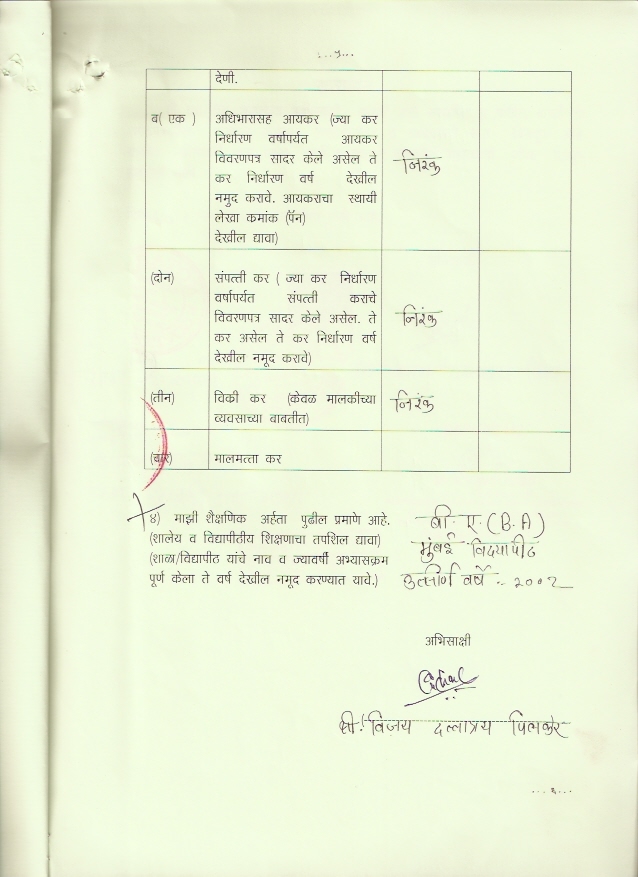 ...५...
देणी.
ब( एक ) अधिभारासह आयकर (ज्या कर
निर्धारण वर्षापर्यत आयकर
विवरणपत्र सादर केले असेल ते
कर निर्धारण वर्ष देखील
नमुद करावे. आयकराचा स्थायी
लेखा कमांक (पॅन)
देखील द्यावा)
निरंक
(दोन) संपत्ती कर ( ज्या कर निर्धारण
वर्षापर्यत संपत्ती कराचे
विवरणपत्र सादर केले असेल. ते
कर असेल ते कर निर्धारण वर्ष
देखील नमूद करावे)
निरंक
(तीन) विकी कर (केवळ मालकीच्या
व्यवसाच्या बाबतीत)
निरंक
(चार) मालमत्ता कर
४) माझी शैक्षणिक अर्हता पुढील प्रमाणे आहे.
(शालेय व विद्यापीतीय शिक्षणाचा तपशिल द्यावा)
(शाळा/विद्यापीठ यांचे नाव व ज्यावर्षी अभ्यासक्रम
पूर्ण केला ते वर्ष देखील नमूद करण्यात यावे.)
बी. ए. (B.A)
मुंबई विद्यापीठ
उत्तीर्ण वर्षे :- २००२
अभिसाक्षी
श्री. विजय दत्तात्रय
...६...